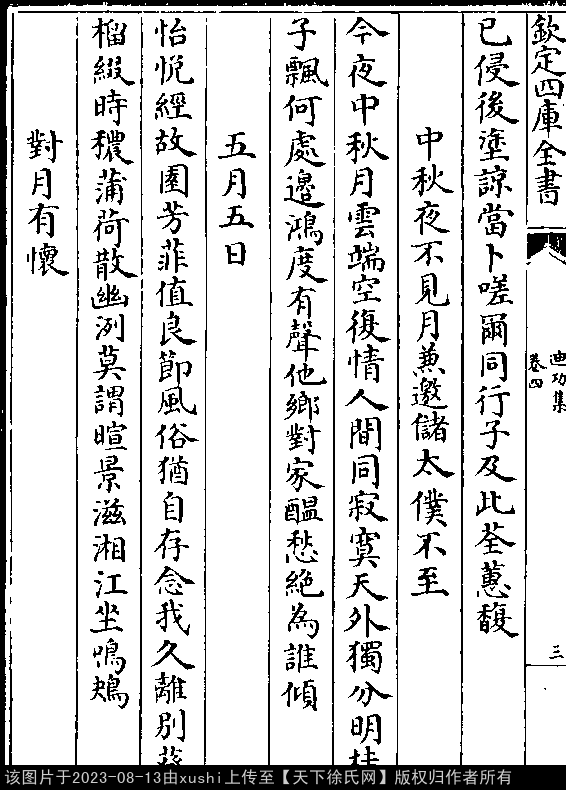 欽定四庫全書
迪功集
卷四
三
已侵後塗諒當卜嗟爾同行子及此荃蕙馥
中秋夜不見月兼邀儲太僕不至
今夜中秋月雲端空復情人間同寂寞天外獨分明桂
子飄何處邊鴻度有聲他鄉對家醖愁絶為誰傾
五月五日
怡悅經故園芳菲值良節風俗猶自存念我久離別葵
榴綴時穠蒲荷散幽洌莫謂暄景滋湘江坐鳴鴂
對月有懷
该图片于2023-08-13由xushi上传至【天下徐氏网】版权归作者所有